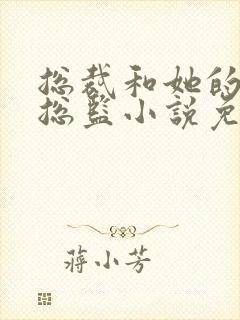 总裁和她的
总监小说免
蒋小芳